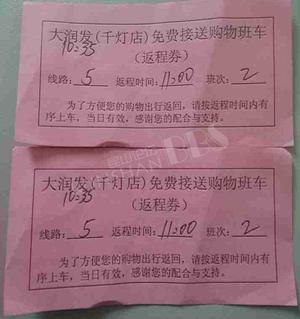 大润发(千灯店)免费接送购物班车
10:35
(返程券)
线路: 5 返程时间: 11:00 班次: 2
为了方便您的购物出行返回,请按返程时间内有
序上车,当日有效,感谢您的配合与支持。
BBS
大润发(千灯店)免费接送购物班车
10:35
(返程券)
线路: 5 返程时间: 11:00 班次: 2
为了方便您的购物出行返回,请按返程时间内有
序上车,当日有效,感谢您的配合与支持。